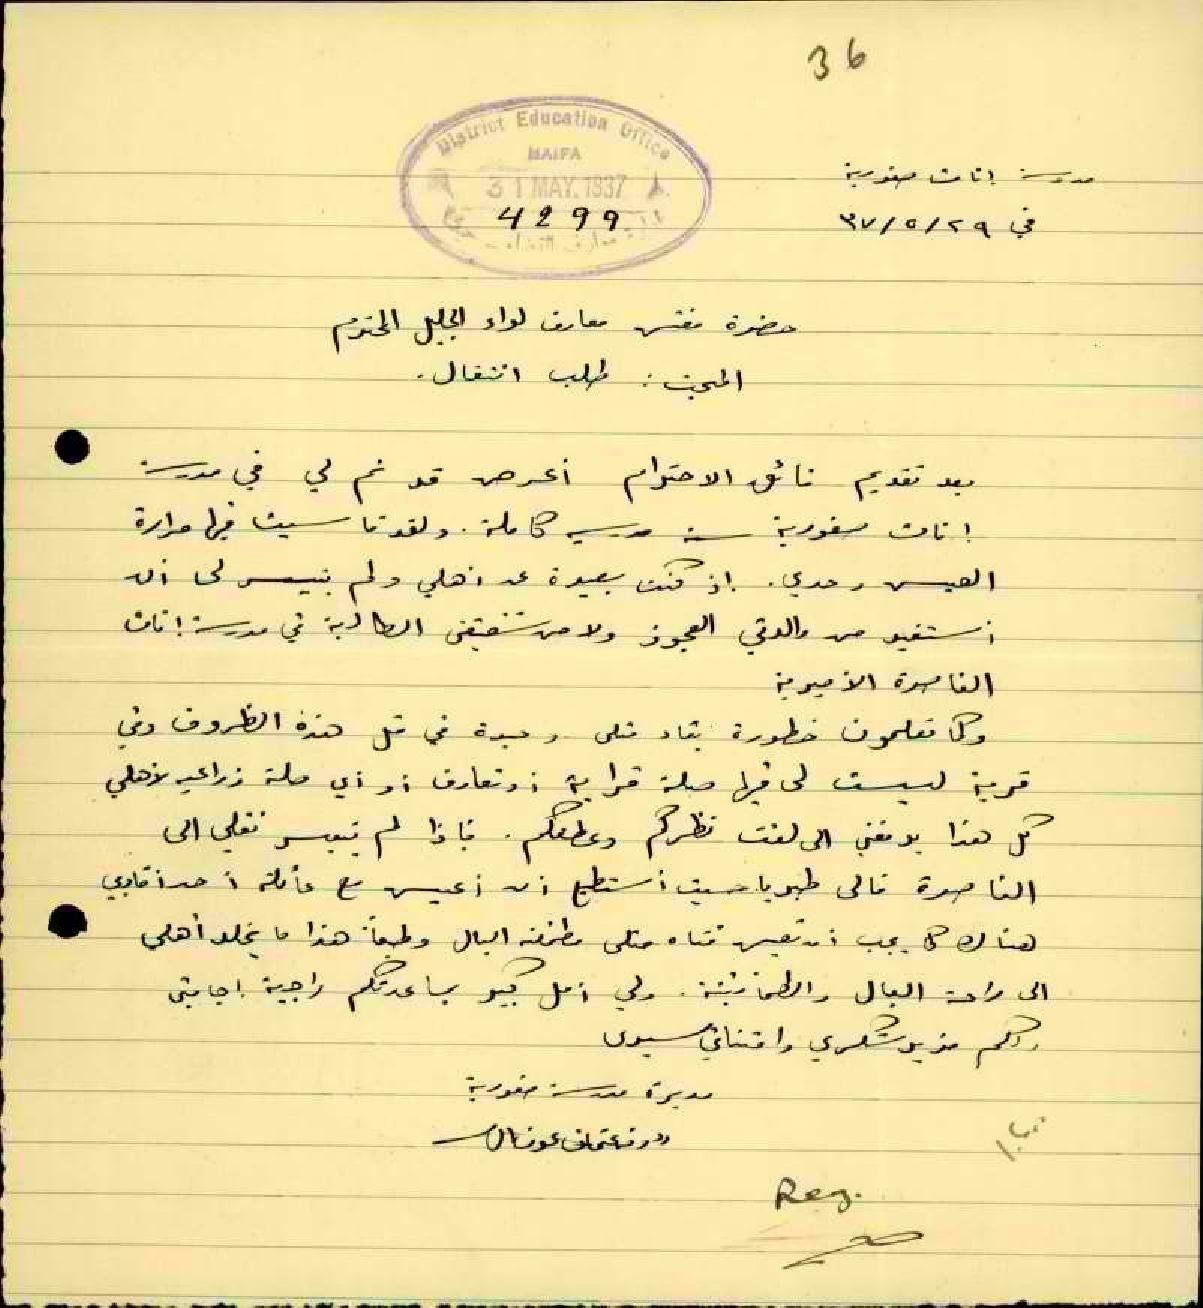 36
District Education Office
HAIFA
31 MAY. 1937
4299
مدرسة اناث صفورية
في ٢٩/٥/٣٧
حضرة مفتش معارف لواء الجليل المحترم
المبحث: طلب انتقال.
بعد تقديم فائق الاحترام أعرض قد تم لي في مدرسة
اناث صفورية سنة مدرسية كاملة. ولقد قاسيت فيها مرارة
العيش وحدي. اذ كنت بعيدة عن أهلي ولم يتيسر لي أن
أستفيد من والدتي العجوز ولا من شقيقتي الطالبة في مدرسة اناث
الناصرة الأميرية
وكما تعلمون خطورة بقاء مثلي وحيدة في مثل هذه الظروف وفي
قرية ليست لي فيها صلة قرابة أو تعارف أو أي صلة زراعية لأهلي
كل هذا يدفعني الى لفت نظركم وعطفكم. فاذا لم يتيسر نقلي الى
الناصرة فالى طبريا حيث أستطيع أن أعيش مع عائلة أحد أقاربي
هناك كما يجب أن تعيش فتاه مثلي مطمئنة البال وطبعاً هذا ما يخلد أهلي
الى راحة البال والطمأنينة. ولي أمل كبير بمساعدتكم راجية اجابتي
ولكم مزيد شكري وامتناني سيدي
مديرة مدرسة صفورية
Reg.